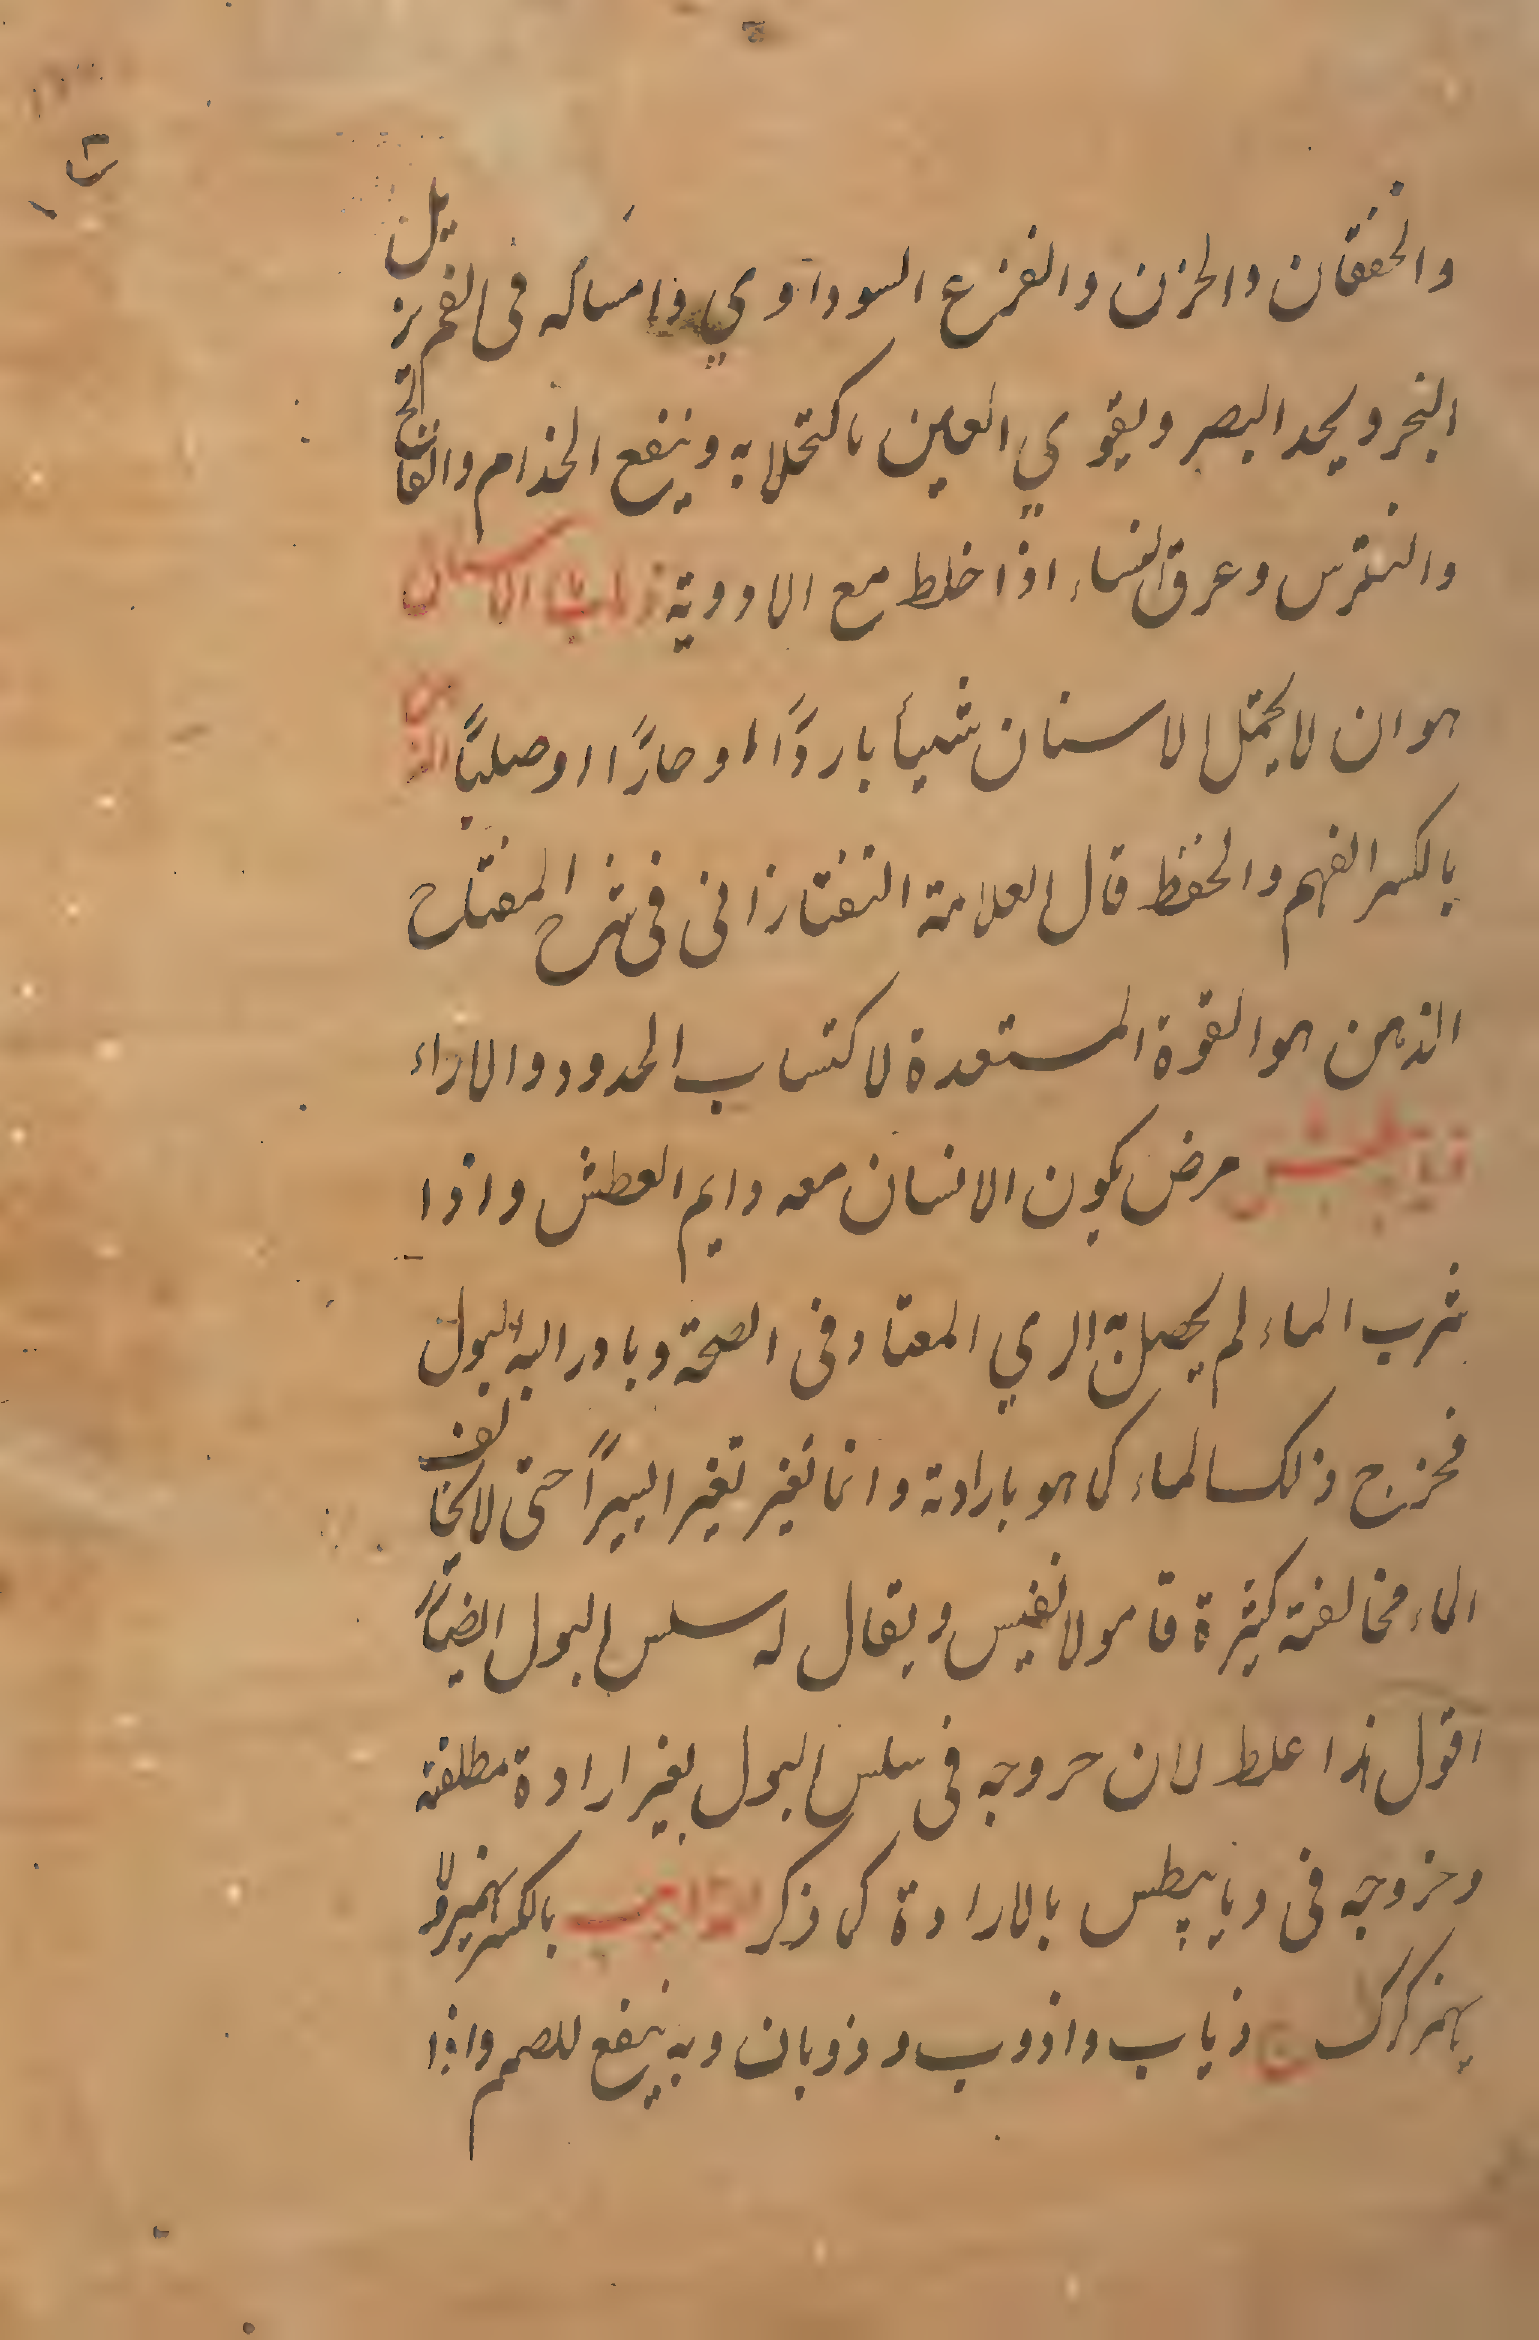 والخفقان والحزن والفزع السوداوي وامساكه فى الفم يزيل
البخر ويحد البصر ويقوي العين اكتحلا به وينفع الجذام والفالج
والنقرس وعرق النساء اذا خلط مع الادوية ذهاب الاسنان
هو ان لا يحتمل الاسنان شيأ باردًا او حارًا او صلبًا الذهن
بالكسر الفهم والحفظ قال العلامة التفتازانى فى شرح المفتاح
الذهن هو القوة المستعدة لاكتساب الحدود والاراء
ذيابيطس مرض يكون الانسان معه دايم العطش واذا
شرب الماء لم يحصل به الري المعتاد فى الصحة وبادر اليه البول
فخرج ذلك الماء كما هو بارادته وانما تغير تغيرا يسيرًا حتى لا يخالف
الماء مخالفته كثيرة قا مولا نفيس ويقال له سلس البول ايضًا
اقول هذا غلط لان خروجه فى سلس البول بغير ارادة مطلقته
وخروجه فى ديابيطس بالارادة كما ذكر بالكسر يهمز ولا
يهمز كرك ج ذياب واذوب وذوبان وبه ينفع للصم واذا